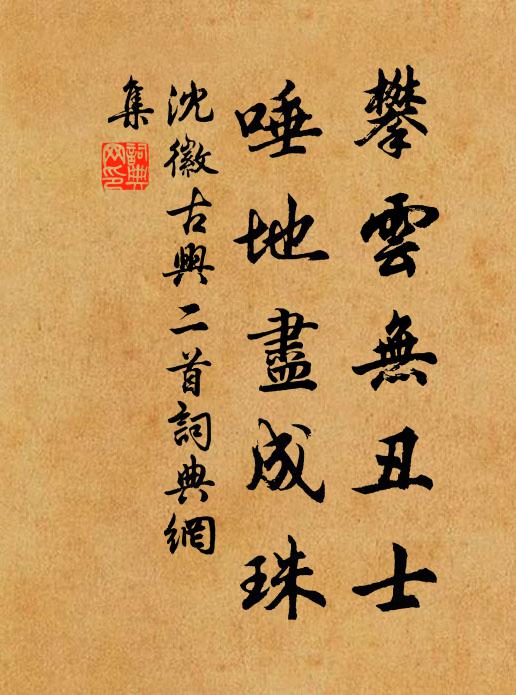 攀雲無丑士
唾地盡成珠
沈徽古興二首詞典網
集
詞典
网印